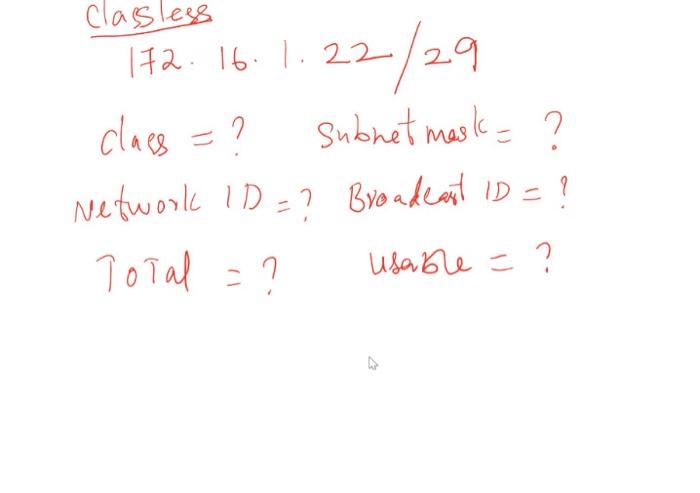 Classless
172.16.1.22/29
Class = ? Subnet mask = ?
Network ID = ? Broadcast ID = ?
ToTal = ? usable = ?